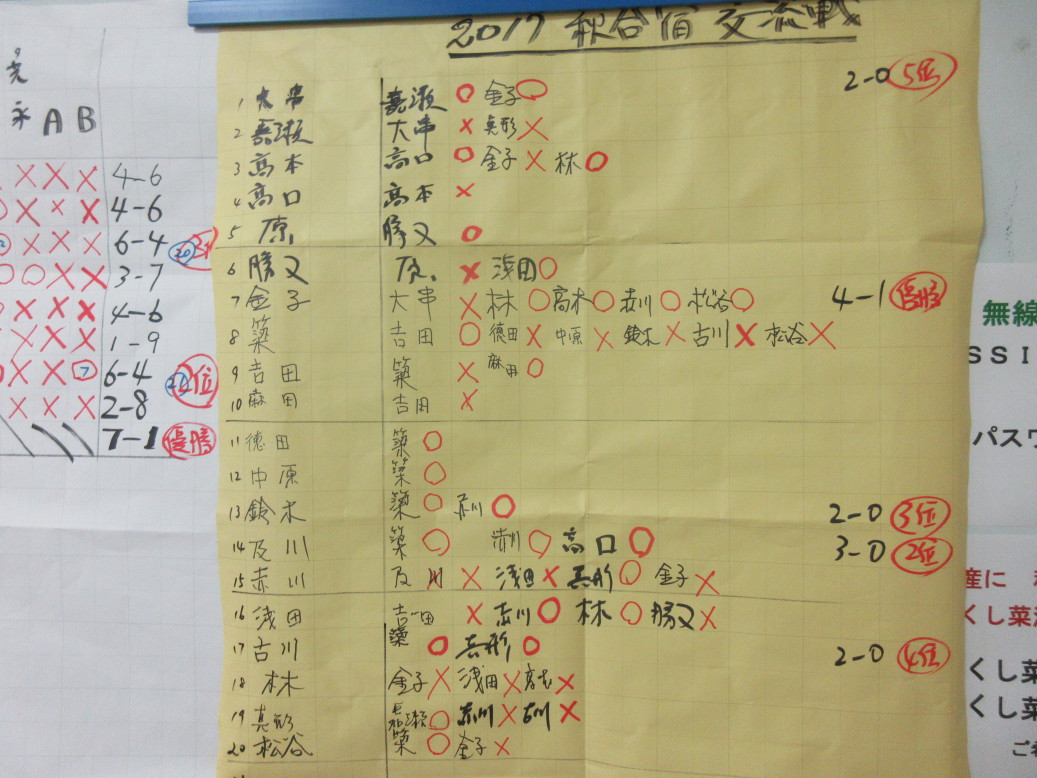 2017 秋合宿 交流戦
1 大串 嘉瀬 ○ 金子 ○ 2-0 5位
2 嘉瀬 大串 × 真形 ×
3 高本 高口 ○ 金子 × 林 ○
4 高口 高本 ×
5 原 勝又 ○
6 勝又 原 × 浅田 ○
7 金子 大串 × 林 ○ 高本 ○ 赤川 ○ 松谷 ○ 4-1 優勝
8 築 吉田 ○ 徳田 × 中原 × 鈴木 × 古川 × 松谷 ×
9 吉田 築 × 麻田 ○
10 麻田 吉田 ×
11 徳田 築 ○
12 中原 築 ○
13 鈴木 築 ○ 赤川 ○ 2-0 3位
14 及川 築 ○ 赤川 ○ 高口 ○ 3-0 2位
15 赤川 及川 × 浅田 × 真形 ○ 金子 ×
16 浅田 吉田 × 赤川 ○ 林 ○ 勝又 ×
17 古川 築 ○ 真形 ○ 2-0 4位
18 林 金子 × 浅田 × 高本 ×
19 真形 嘉瀬 ○ 赤川 × 古川 ×
20 松谷 築 ○ 金子 ×
永 A B
× × × 4-6
○ × × × 4-6
× × × 6-4 20
○ ○ × × 3-7
○ × × × 4-6
× × × 1-9
○ × × 7 6-4 21 2位
× × × 2-8
7-1 優勝
無線
SSI
パスワ
産に
くし菜
くし菜
くし菜
ご